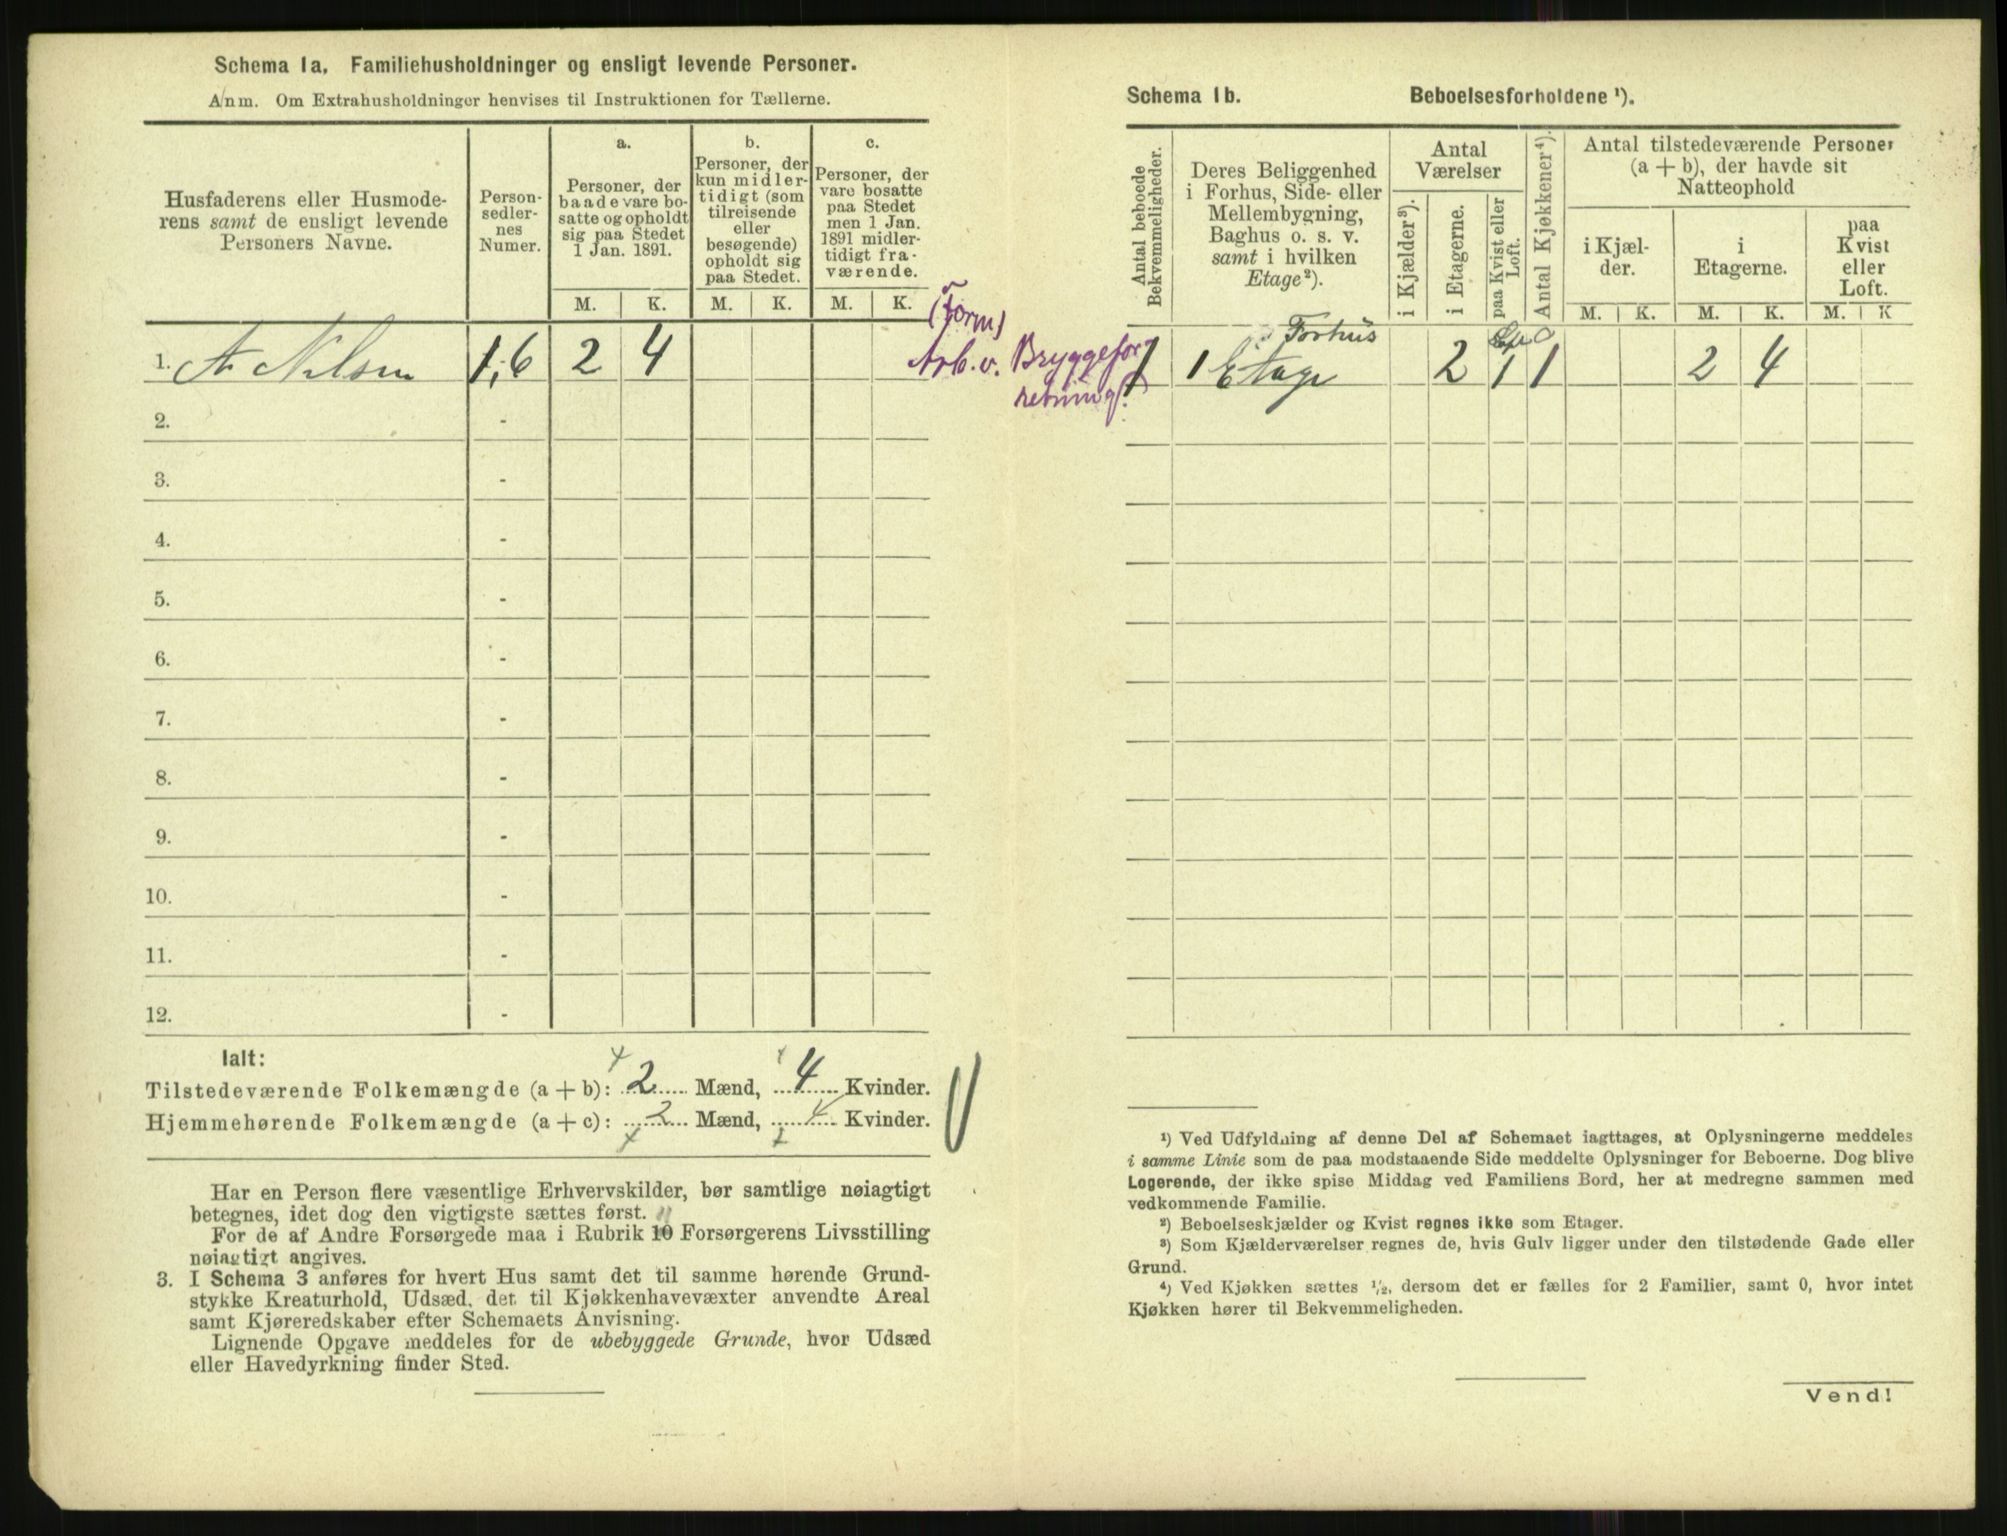 Schema 1a. Familiehusholdninger og ensligt levende Personer.
Anm. Om Extrahusholdninger henvises til Instruktionen for Tællerne.
Husfaderens eller Husmode-
rens samt de ensligt levende
Personers Navne.
Person-
sedler-
nes
Numer.
a.
Personer, der
baade vare bo-
satte og opholdt
sig paa Stedet
1 Jan. 1891.
b.
Personer, der
kun midler-
tidigt (som
tilreisende
eller
besøgende)
opholdt sig
paa Stedet.
c.
Personer, der
vare bosatte
paa Stedet
men 1 Jan.
1891 midler-
tidigt fra-
værende.
M. K. M. K. M. K.
1. A Nilsen 1,6 2 4
(Form)
Arb. v. Bryggefor
retning
2. -
3. -
4. -
5. -
6. -
7. -
8. -
9. -
10. -
11. -
12. -
Ialt:
Tilstedeværende Folkemængde (a + b): 2 Mænd, 4 Kvinder.
Hjemmehørende Folkemængde (a + c): 2 Mænd, 4 Kvinder.
Har en Person flere væsentlige Erhvervskilder, bør samtlige nøiagtigt
betegnes, idet dog den vigtigste sættes først.
For de af Andre Forsørgede maa i Rubrik 10 Forsørgerens Livsstilling
nøiagtigt angives.
3. I Schema 3 anføres for hvert Hus samt det til samme hørende Grund-
stykke Kreaturhold, Udsæd, det til Kjøkkenhavevæxter anvendte Areal
samt Kjøreredskaber efter Schemaets Anvisning.
Lignende Opgave meddeles for de ubebyggede Grunde, hvor Udsæd
eller Havedyrkning finder Sted.
Schema 1b. Beboelsesforholdene ¹).
Antal beboede
Bekvemmeligheder.
Deres Beliggenhed
i Forhus, Side- eller
Mellembygning,
Baghus o. s. v.
samt i hvilken
Etage²).
Antal
Værelser
i Kjælder³).
i Etagerne.
paa Kvist eller
Loft.
Antal Kjøkkener⁴).
Antal tilstedeværende Personer
(a + b), der havde sit
Natteophold
i Kjæl-
der.
i
Etagerne.
paa
Kvist
eller
Loft.
M. K. M. K. M. K
Forhus
1 1 Etage 2 1 1 2 4
¹) Ved Udfyldning af denne Del af Schemaet iagttages, at Oplysningerne meddeles
i samme Linie som de paa modstaaende Side meddelte Oplysninger for Beboerne. Dog blive
Logerende, der ikke spise Middag ved Familiens Bord, her at medregne sammen med
vedkommende Familie.
²) Beboelseskjælder og Kvist regnes ikke som Etager.
³) Som Kjælderværelser regnes de, hvis Gulv ligger under den tilstødende Gade eller
Grund.
⁴) Ved Kjøkken sættes ½, dersom det er fælles for 2 Familier, samt 0, hvor intet
Kjøkken hører til Bekvemmeligheden.
Vend!